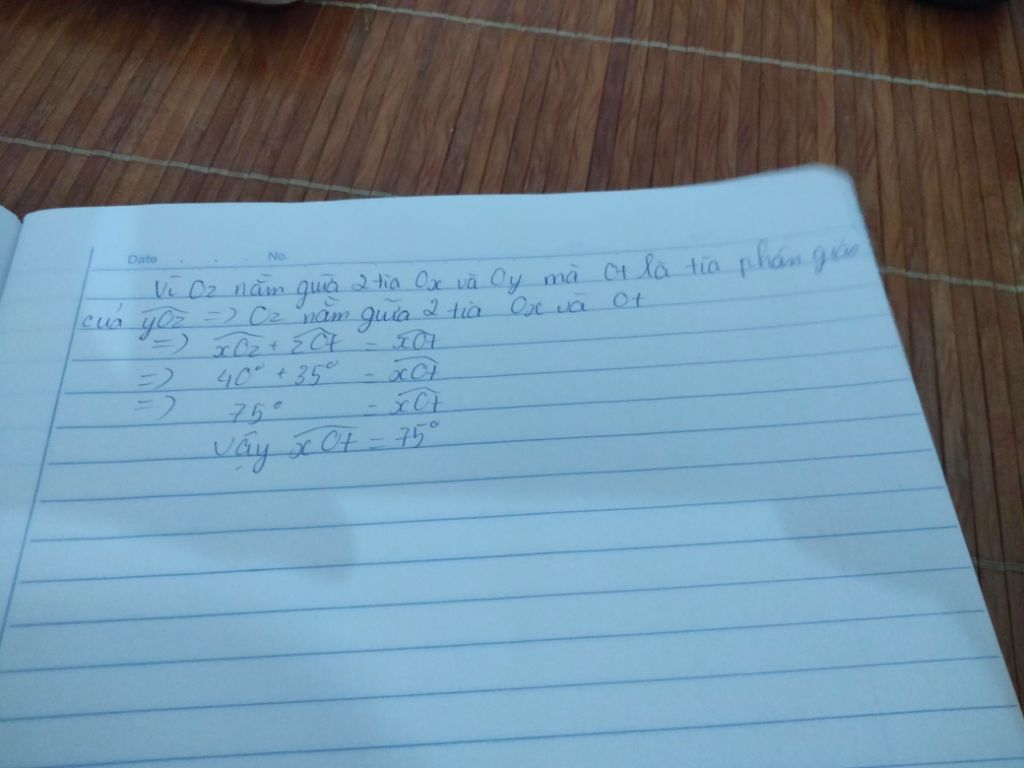 Date . . . No.
Vì Oz nằm giữa 2 tia Ox và Oy mà Ot là tia phân giác
của yOz => Oz nằm giữa 2 tia Ox và Ot
=> xOz + zOt = xOt
=> 40° + 35° = xOt
=> 75° = xOt
Vậy xOt = 75°